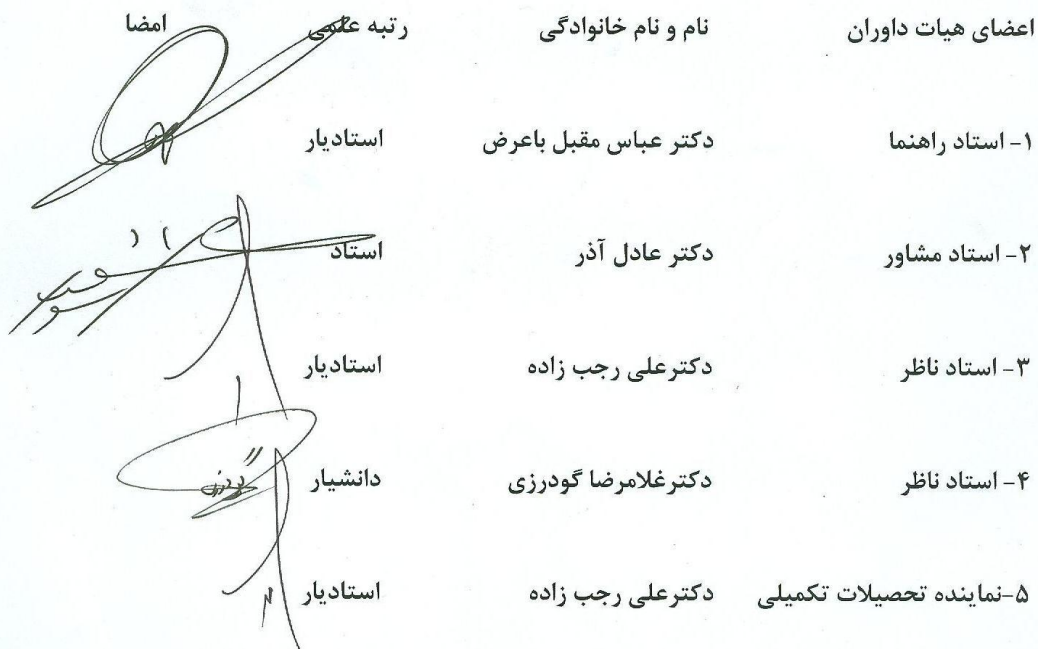 اعضای هیات داوران نام و نام خانوادگی رتبه علمی امضا
۱- استاد راهنما دکتر عباس مقبل باعرض استادیار
۲- استاد مشاور دکتر عادل آذر استاد
۳- استاد ناظر دکترعلی رجب زاده استادیار
۴- استاد ناظر دکترغلامرضا گودرزی دانشیار
۵-نماینده تحصیلات تکمیلی دکترعلی رجب زاده استادیار